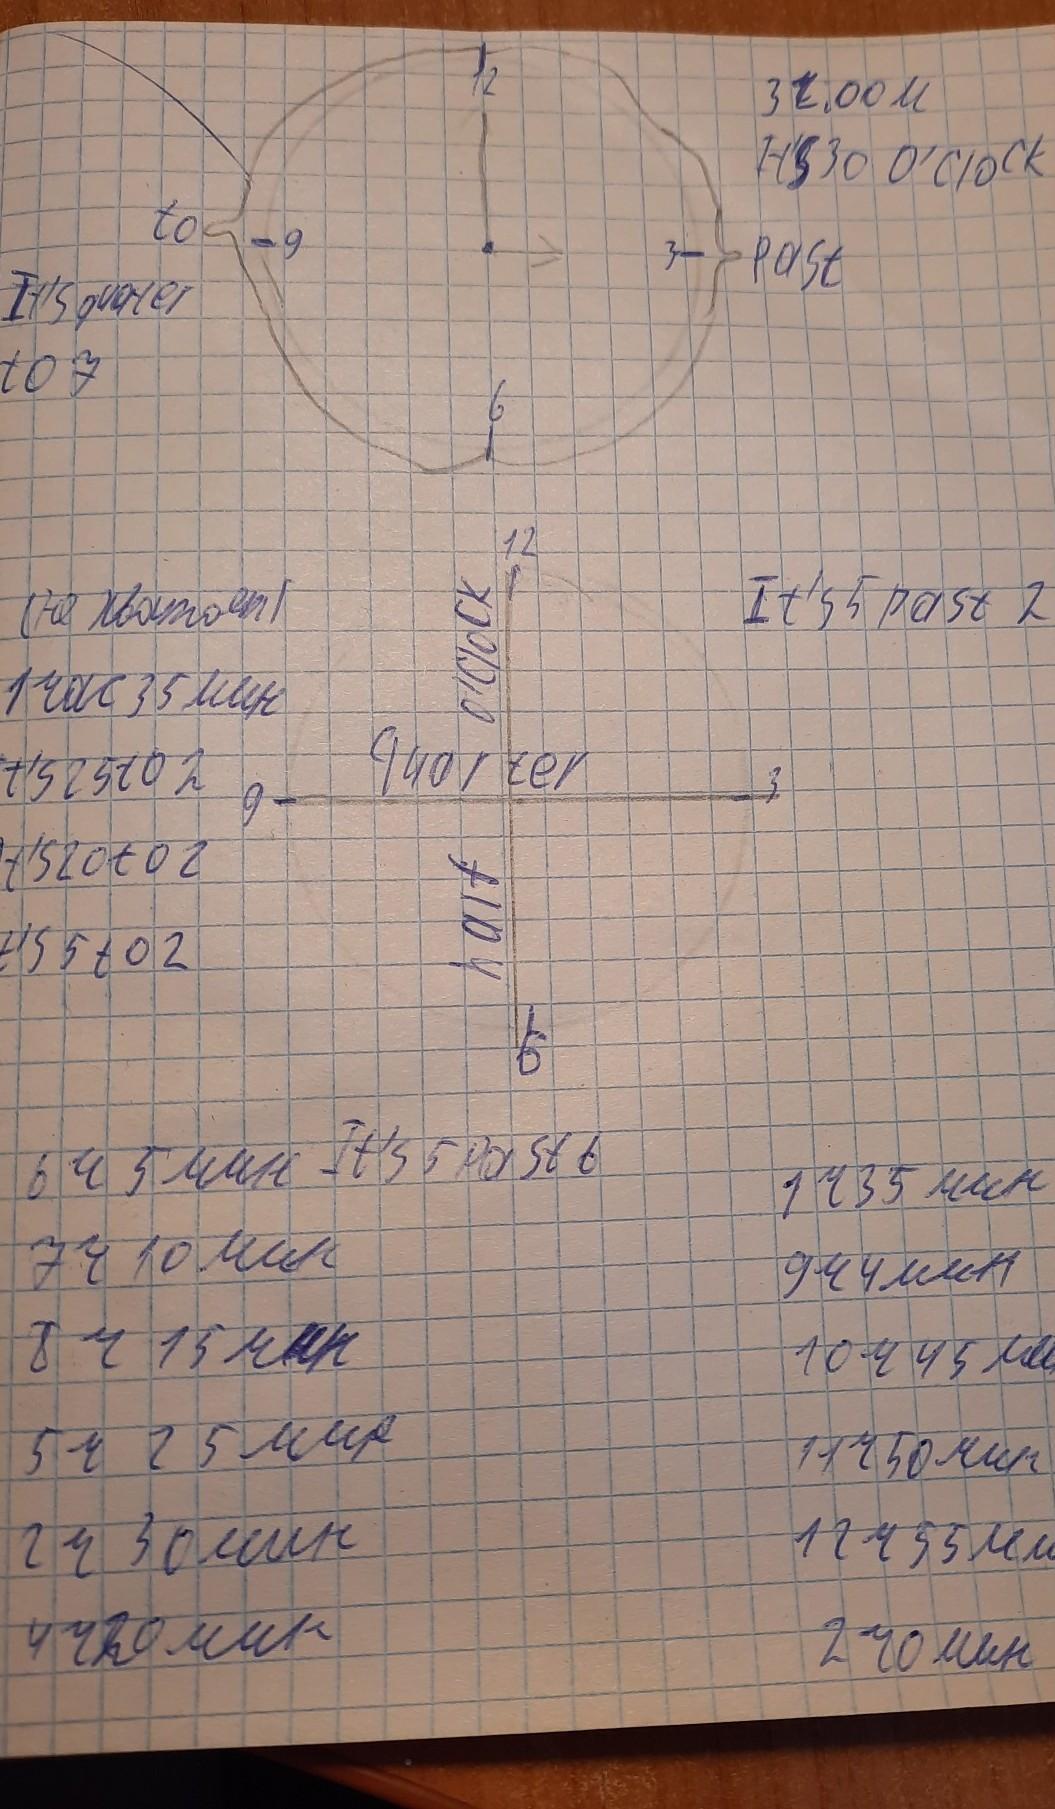 12
3ч.00м
It's 30 O'Clock
to
9
3
past
It's quater
to 7
6
12
(не хватает)
O'Clock
It's 5 past 2
1 час 35 мин
quarter
t's 25 to 2
9
3
t's 20 to 2
half
t's 5 to 2
6
6 ч 5 мин It's 5 Past 6
1 ч 35 мин
7 ч 10 мин
9 ч 4 мин
8 ч 15 мин
10 ч 45 ми
5 ч 25 мин
11 ч 50 мин
2 ч 30 мин
12 ч 55 ми
4 ч 20 мин
2 ч 0 мин